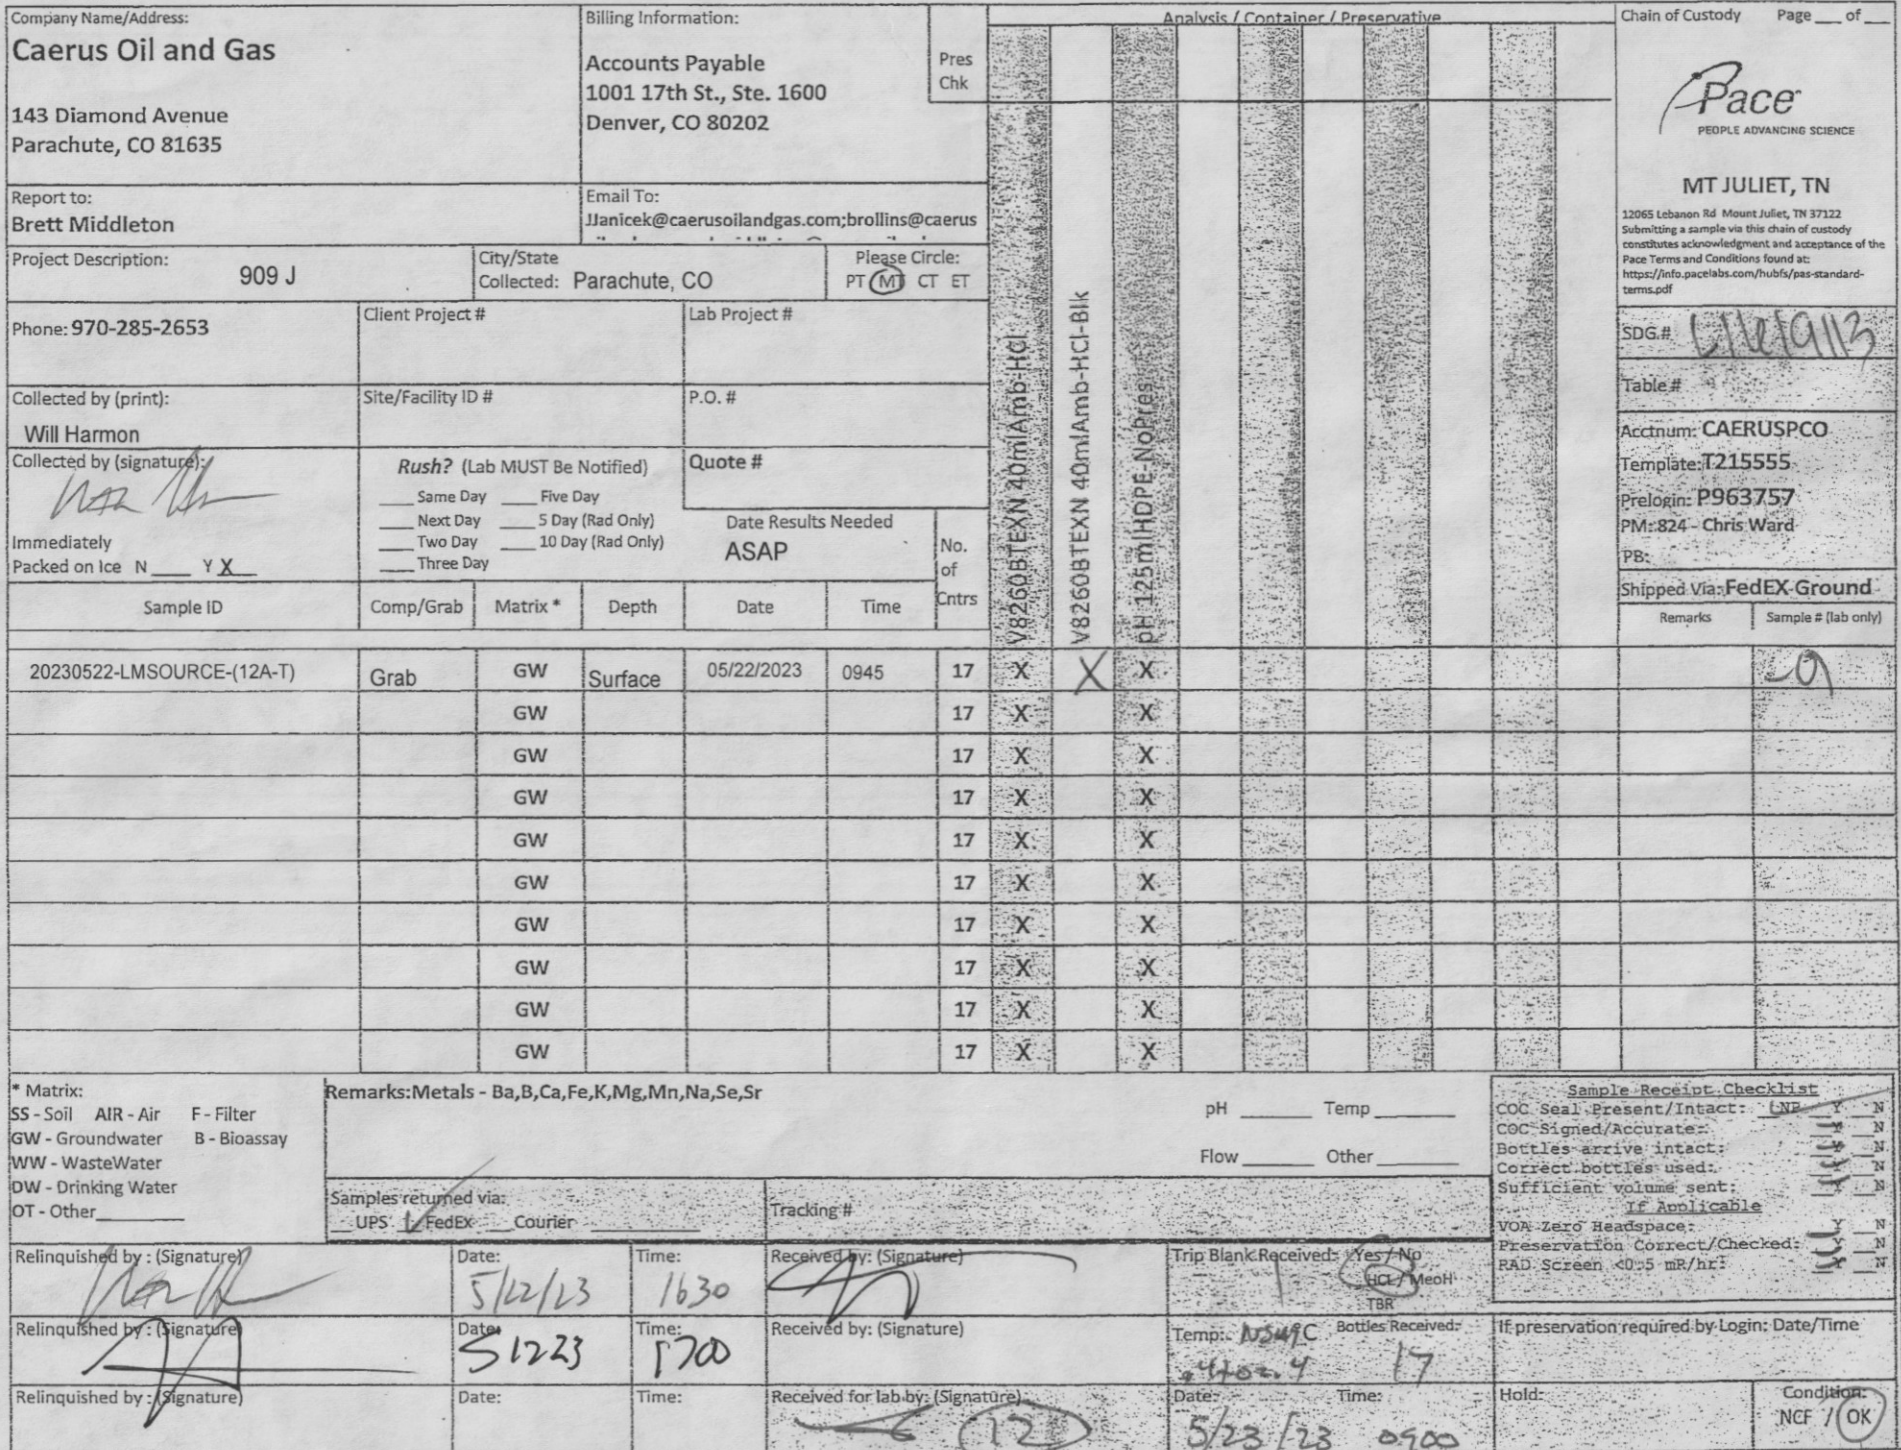 Company Name/Address:
Caerus Oil and Gas
143 Diamond Avenue
Parachute, CO 81635
Billing Information:
Accounts Payable
1001 17th St., Ste. 1600
Denver, CO 80202
Pres
Chk
Analysis / Container / Preservative
Chain of Custody Page ___ of ___
Pace
PEOPLE ADVANCING SCIENCE
MT JULIET, TN
12065 Lebanon Rd Mount Juliet, TN 37122
Submitting a sample via this chain of custody
constitutes acknowledgment and acceptance of the
Pace Terms and Conditions found at:
https://info.pacelabs.com/hubfs/pas-standard-
terms.pdf
Report to:
Brett Middleton
Email To:
JJanicek@caerusoilandgas.com;brollins@caerus
Project Description:
909 J
City/State
Collected: Parachute, CO
Please Circle:
PT MT CT ET
Phone: 970-285-2653
Client Project #
Lab Project #
SDG #
Table #
Collected by (print):
Will Harmon
Site/Facility ID #
P.O. #
Acctnum: CAERUSPCO
Template: T215555
Prelogin: P963757
PM: 824 - Chris Ward
PB:
Shipped Via: FedEX Ground
Collected by (signature):
Rush? (Lab MUST Be Notified)
___ Same Day ___ Five Day
___ Next Day ___ 5 Day (Rad Only)
___ Two Day ___ 10 Day (Rad Only)
___ Three Day
Quote #
Date Results Needed
ASAP
Immediately
Packed on Ice N ___ Y X
No.
of
Cntrs
V8260BTEXN 40mlAmb-HCl
V8260BTEXN 40mlAmb-HCl-Blk
pH 125mlHDPE-NoPres
Sample ID Comp/Grab Matrix * Depth Date Time
Remarks Sample # (lab only)
20230522-LMSOURCE-(12A-T) Grab GW Surface 05/22/2023 0945 17 X X X
GW 17 X X
GW 17 X X
GW 17 X X
GW 17 X X
GW 17 X X
GW 17 X X
GW 17 X X
GW 17 X X
GW 17 X X
* Matrix:
SS - Soil AIR - Air F - Filter
GW - Groundwater B - Bioassay
WW - WasteWater
DW - Drinking Water
OT - Other
Remarks:Metals - Ba,B,Ca,Fe,K,Mg,Mn,Na,Se,Sr
pH ___ Temp ___
Flow ___ Other ___
Samples returned via:
___ UPS ✓ FedEx ___ Courier
Tracking #
Sample Receipt Checklist
COC Seal Present/Intact: NP Y N
COC Signed/Accurate: Y N
Bottles arrive intact: Y N
Correct bottles used: Y N
Sufficient volume sent: Y N
If Applicable
VOA Zero Headspace: Y N
Preservation Correct/Checked: Y N
RAD Screen <0.5 mR/hr: Y N
Relinquished by : (Signature)
Date:
5/22/23
Time:
1630
Received by: (Signature)
Trip Blank Received: Yes / No
HCL / MeoH
TBR
Relinquished by : (Signature)
Date:
Time:
1700
Received by: (Signature)
Temp: °C Bottles Received:
17
If preservation required by Login: Date/Time
Relinquished by : (Signature)
Date:
Time:
Received for lab by: (Signature)
12
Date:
5/23/23
Time:
0900
Hold:
Condition:
NCF / OK